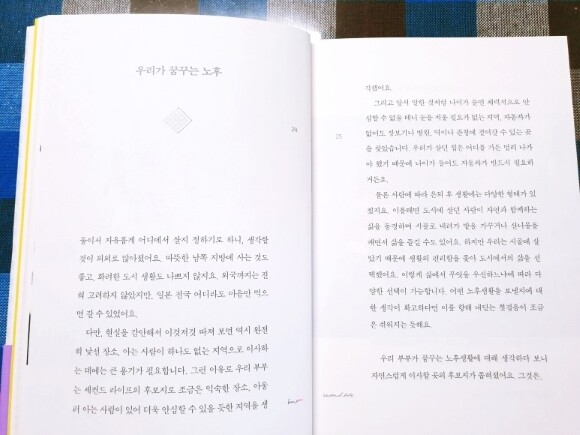 우리가 꿈꾸는 노후
24
둘이서 자유롭게 어디에서 살지 정하기로 하니, 생각할
것이 의외로 많아졌어요. 따뜻한 남쪽 지방에 사는 것도
좋고, 화려한 도시 생활도 나쁘지 않지요. 외국까지는 전
혀 고려하지 않았지만, 일본 전국 어디라도 마음만 먹으
면 갈 수 있었어요.
다만, 현실을 감안해서 이것저것 따져 보면 역시 완전
히 낯선 장소, 아는 사람이 하나도 없는 지역으로 이사하
는 데에는 큰 용기가 필요합니다. 그런 이유로 우리 부부
는 세컨드 라이프의 후보지로 조금은 익숙한 장소, 아울
러 아는 사람이 있어 더욱 안심할 수 있을 듯한 지역을 생
각했어요.
그리고 앞서 말한 것처럼 나이가 들면 체력적으로 안
심할 수 없을 테니 눈을 치울 필요가 없는 지역, 자동차가
없어도 장보기나 병원, 역이나 관청에 걸어갈 수 있는 곳
을 찾았습니다. 우리가 살던 집은 어디를 가든 멀리 나가
야 했기 때문에 나이가 들어도 자동차가 반드시 필요하
거든요.
25
물론 사람에 따라 은퇴 후 생활에는 다양한 형태가 있
겠지요. 이를테면 도시에 살던 사람이 자연과 함께하는
삶을 동경하여 시골로 내려가 밭을 가꾸거나 산나물을
캐면서 삶을 즐길 수도 있어요. 하지만 우리는 시골에 살
았기 때문에 생활의 편리함을 좇아 도시에서의 삶을 선
택했어요. 이렇게 삶에서 무엇을 우선하느냐에 따라 다
양한 선택이 가능합니다. 어떤 노후생활을 보낼지에 대
한 생각이 확고하다면 이를 향해 내딛는 첫걸음이 조금
은 쉬워지는 듯해요.
우리 부부가 꿈꾸는 노후생활에 대해 생각하다 보니
자연스럽게 이사할 곳의 후보지가 좁혀졌어요. 그것은,